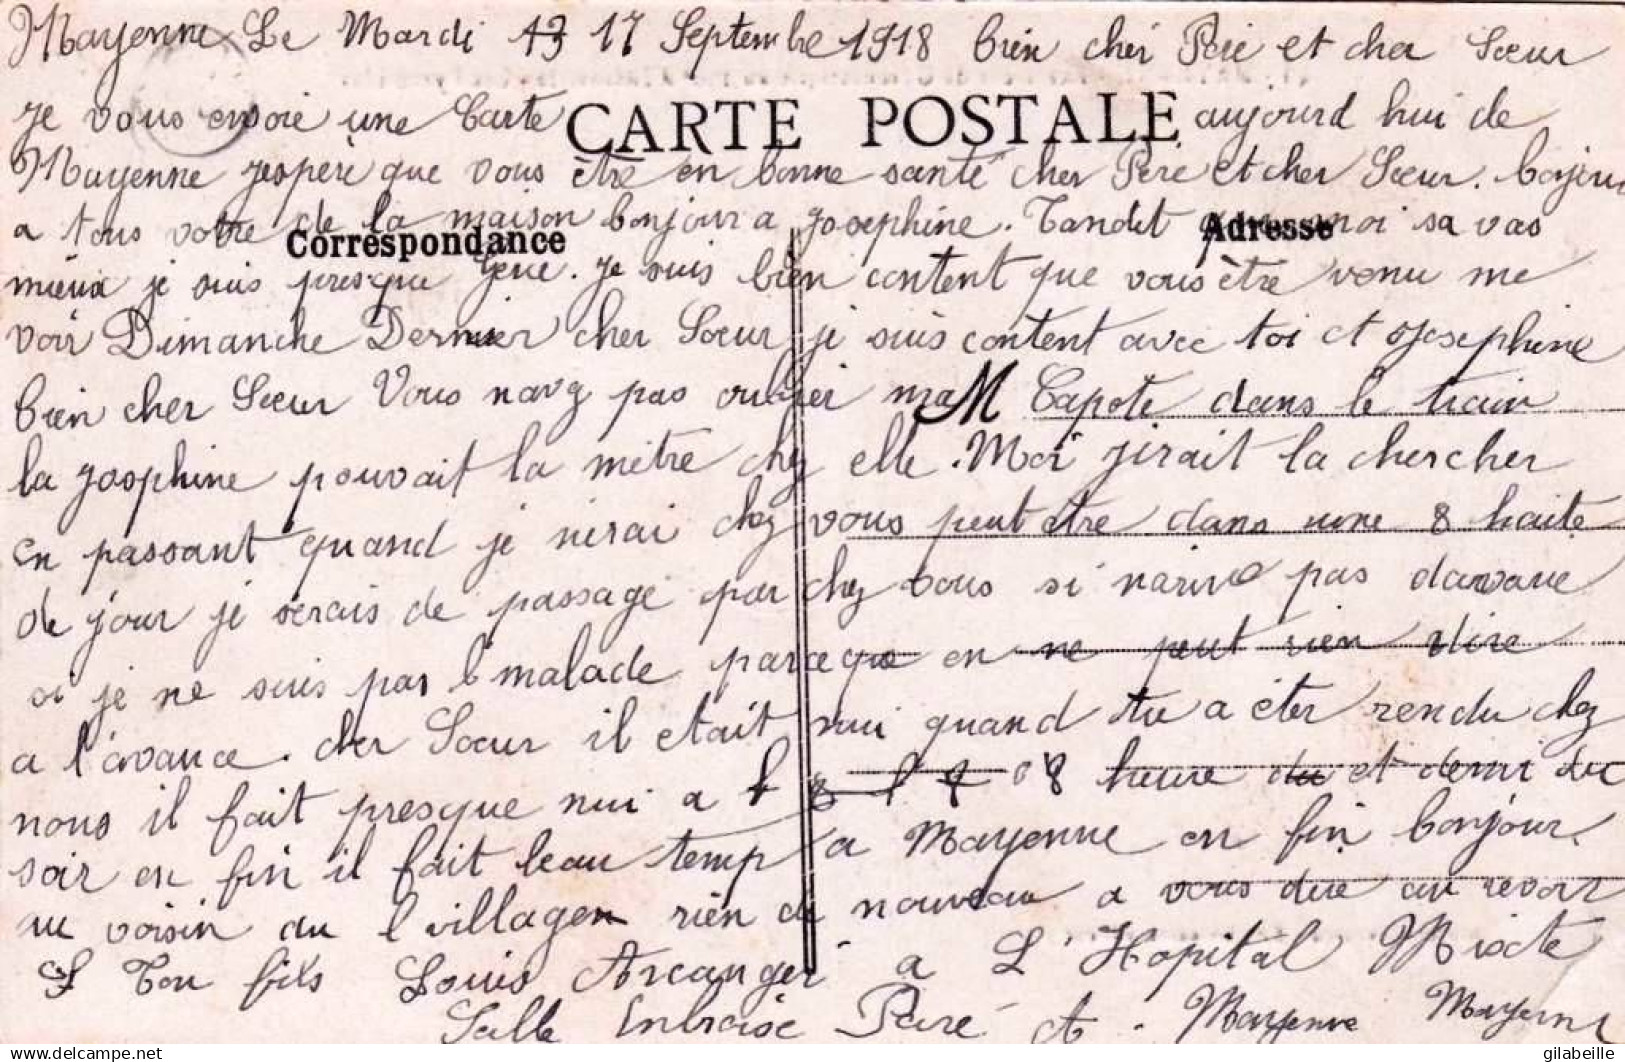 Mayenne Le Mardi 13 17 Septembre 1918 bien cher Pere et cher Sœur
Je vous envoie une Carte CARTE POSTALE aujourd hui de
Mayenne jespére que vous être en bonne santé cher Pére et cher Sœur. bonjour
a tous votre de la maison bonjour a Josephine. Tandit que moi sa vas
Correspondance Adresse
mieux je suis presque Gerie. Je suis bien content que vous être venu me
voir Dimanche Dernier cher Sœur je suis content avec toi et Josephine
bien cher Sœur Vous navez pas oublier ma M Capote dans le train
la Josphine pouvait la mètre chez elle. Moi jirait la chercher
en passant quand je nirai chez vous peut etre dans une 8 haite
de jour je serais de passage par chez vous si narive pas davance
si je ne suis pas malade parceque en ne peut rien dire
a l'avance. cher Sœur il etait nui quand tu a éter rendu chez
nous il fait presque nui a 8 heure et demi du
soir en fin il fait beau temp a Mayenne en fin bonjour
au voisin du village rien de nouveau a vous dire au revoir
Ton fils Louis Arcanger a L'Hopital Mixte
Salle Enbroise Paré a Mayenne Mayenne
gilabeille